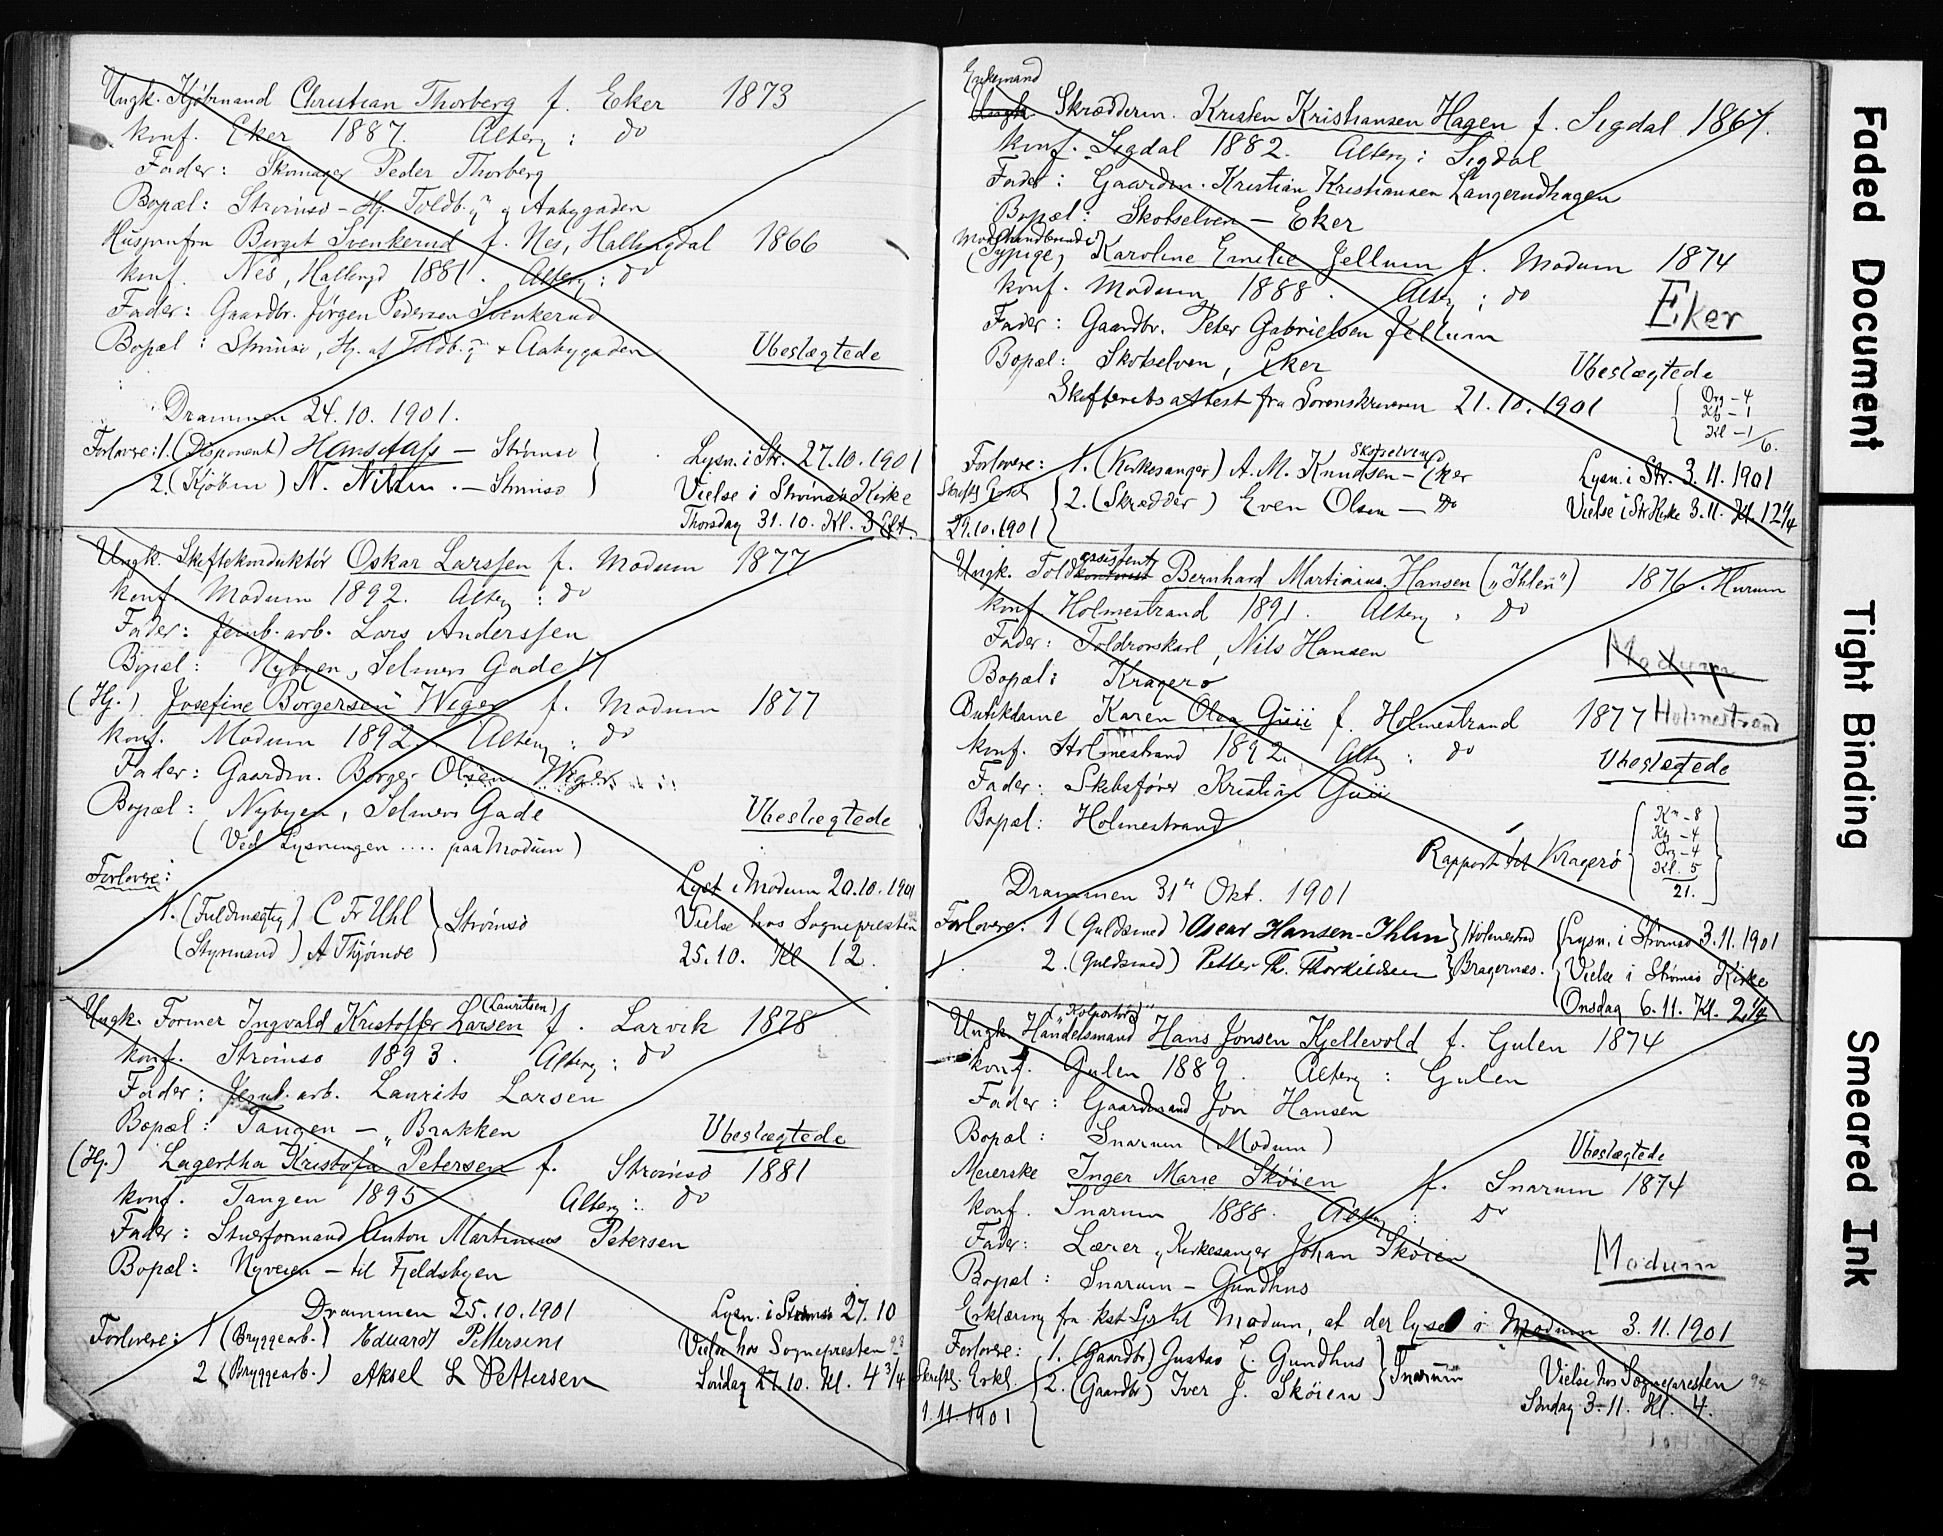 Ungk. Kjøbmand Christian Thorberg f. Eker 1873
konf. Eker 1887. Alterg: do
Fader: Skomager Peder Thorberg
Bopæl: Strømsø - Hj. Toldb.g. og Aabygaden
Husjomfru Berget Svenkerud f. Nes, Hallingdal 1866
konf. Nes, Hallingd 1881. Alterg: do
Fader: Gaardbr. Jørgen Pedersen Svenkerud
Bopæl: Strømsø, Hj. af Toldb.g. & Aabygaden Ubeslægtede
Drammen 24.10.1901.
Forlovere: 1. (Disponent) - Strømsø
2. (Kjøbm) N. Nilsen. - Strømsø
Lysn. i Str. 27.10.1901
Vielse i Strømsø Kirke
Thorsdag 31.10. Kl. 3 Eft
Ungk. Skiftekonduktør Oskar Larssen f. Modum 1877
konf. Modum 1892. Alterg: do
Fader: Jernb. arb. Lars Anderssen
Bopæl: Nybyen, Selmers Gade 17
(Hj.) Josefine Borgersen Weger f. Modum 1877
konf. Modum 1892. Alterg: do
Fader: Gaardm. Borger Olsen Weger
Bopæl: Nybyen, Selmers Gade Ubeslægtede
(Ved Lysningen .... paa Modum)
Forlovere:
1. (Fuldmægtig) C Fr Uhl
(Styrmand) A Thjømøe
Strømsø
Lyst i Modum 20.10.1901
Vielse hos Sognepresten
25.10. Kl 12.
Ungk. Former Ingvald Kristoffer Larsen (Lauritsen) f. Larvik 1878
konf. Strømsø 1893. Alterg: do
Fader: Jernb. arb. Laurits Larsen
Bopæl: Tangen - "Brakken Ubeslægtede
(Hj.) Lagertha Kristofa Petersen f. Strømsø 1881
konf. Tangen 1895 Alterg: do
Fader: Stuerformand Anton Martinius Petersen
Bopæl: Nyveien - til Fjeldsbyen
Drammen 25.10.1901
Forlovere: 1 (Bryggearb.) Eduard Pettersens
2 (Bryggearb.) Aksel L Pettersen
Lysn. i Strømsø 27.10
Vielse hos Sognepresten 93
Søndag 27.10. Kl. 4 3/4
Enkemand
Ungk Skrædderm. Kristen Kristiansen Hagen f. Sigdal 1867.
konf. Sigdal 1882. Alterg: Sigdal
Fader: Gaardm. Kristian Kristiansen Langerudhagen
Bopæl: Skotselven - Eker
(Sypige) Karoline Emilie Jellum f. Modum 1874
konf. Modum 1888. Alterg: do
Eker
Fader: Gaardbr. Peter Gabrielsen Jellum
Bopæl: Skotselven, Eker Ubeslægtede
Skifteretsattest fra Sorenskriveren 21.10.1901
Org - 4
Kb - 1
Kl - 1
6.
Forlovere: 1. (Kirkesanger) A. M. Knudsen - Skotselven Eker
2. (Skrædder) Even Olsen - do
29.10.1901
Lysn. i Str. 3.11.1901
Vielse i Str Kirke 3.11. Kl. 12 1/4
Ungk. Toldkontorist assistent Bernhard Martinius Hansen ("Ihlen") 1876. Hurum
konf Holmestrand 1891. Alterg: do
Fader: Toldrorskarl, Nils Hansen
Modum
Bopæl: Kragerø
Butikdame Karen Olea Guii f. Holmestrand 1877 Holmestrand
konf. Holmestrand 1892. Alterg: do
Ubeslægtede
Fader: Skibsfører Kristian Guii
Bopæl: Holmestrand
Rapport til Kragerø
Kr - 8
Kb - 4
Org - 4
Kl. 5
21.
Drammen 31te Okt. 1901
Forlovere: 1 (Guldsmed) Oscar Hansen-Ihlen Holmestrand
2. (Guldsmed) Petter Th. Thorkildsen Bragernæs.
Lysn. i Strømsø 3.11.1901
Vielse i Strømsø Kirke
Onsdag 6.11. Kl. 2 1/4
("Kolportør")
Ungk. Handelsmand Hans Jonsen Kjellevold f. Gulen 1874
konf. Gulen 1889. Alterg: Gulen
Fader: Gaardmand Jon Hansen
Bopæl: Snarum (Modum) Ubeslægtede
Meierske Inger Marie Skøien f. Snarum 1874
konf. Snarum 1888. Alterg: do
Fader: Lærer, Kirkesanger Johan Skøien
Modum
Bopæl: Snarum - Gundhus
Erklæring fra til Modum, at der lyses i Modum 3.11.1901
Forlovere: 1. (Gaardbr) Gustav E. Gundhus
2. (Gaardbr) Iver J. Skøien
Snarum
Skriftl. Erkl.
1.11.1901
Vielse hos Sognepresten 94
Søndag 3.11. Kl. 4.
Faded Document
Tight Binding
Smeared Ink